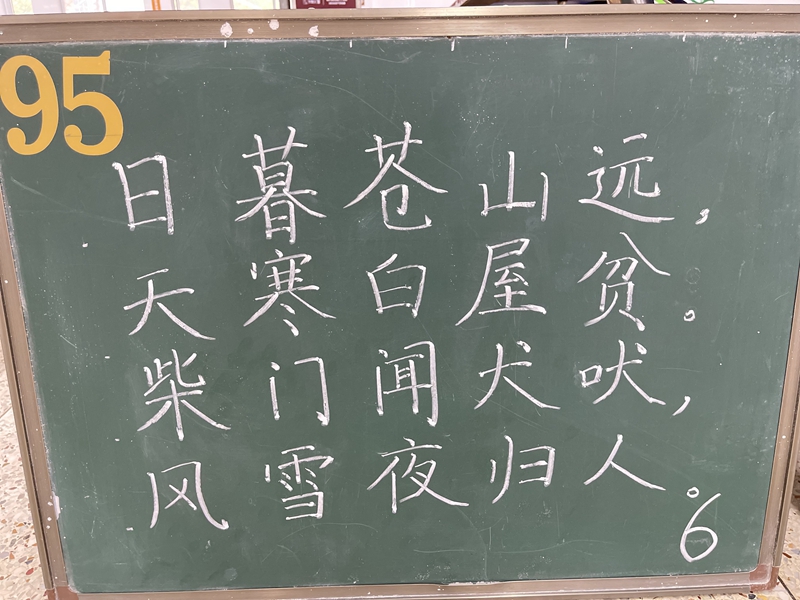 95
日暮苍山远，
天寒白屋贫。
柴门闻犬吠，
风雪夜归人。
6